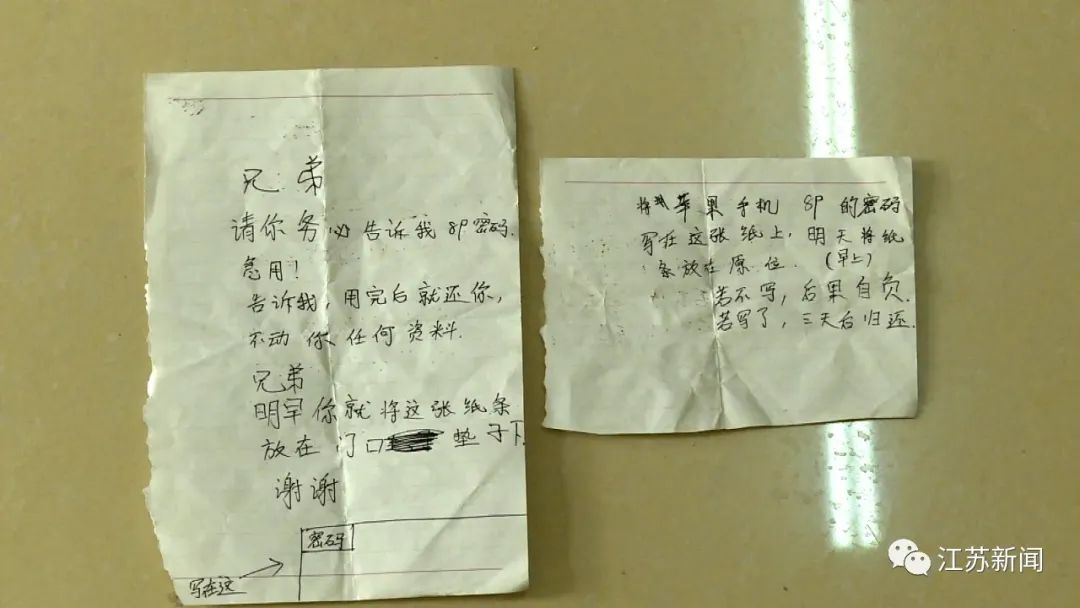 兄弟
请你务必告诉我8P密码.
急用!
告诉我,用完后就还你,
不动你任何资料.
兄弟
明早你就将这张纸条
放在门口垫子下.
谢谢
密码
写在这
将苹果手机 8P 的密码
写在这张纸上,明天将纸
条放在原位.(早上)
若不写,后果自负.
若写了,三天后归还.
江苏新闻